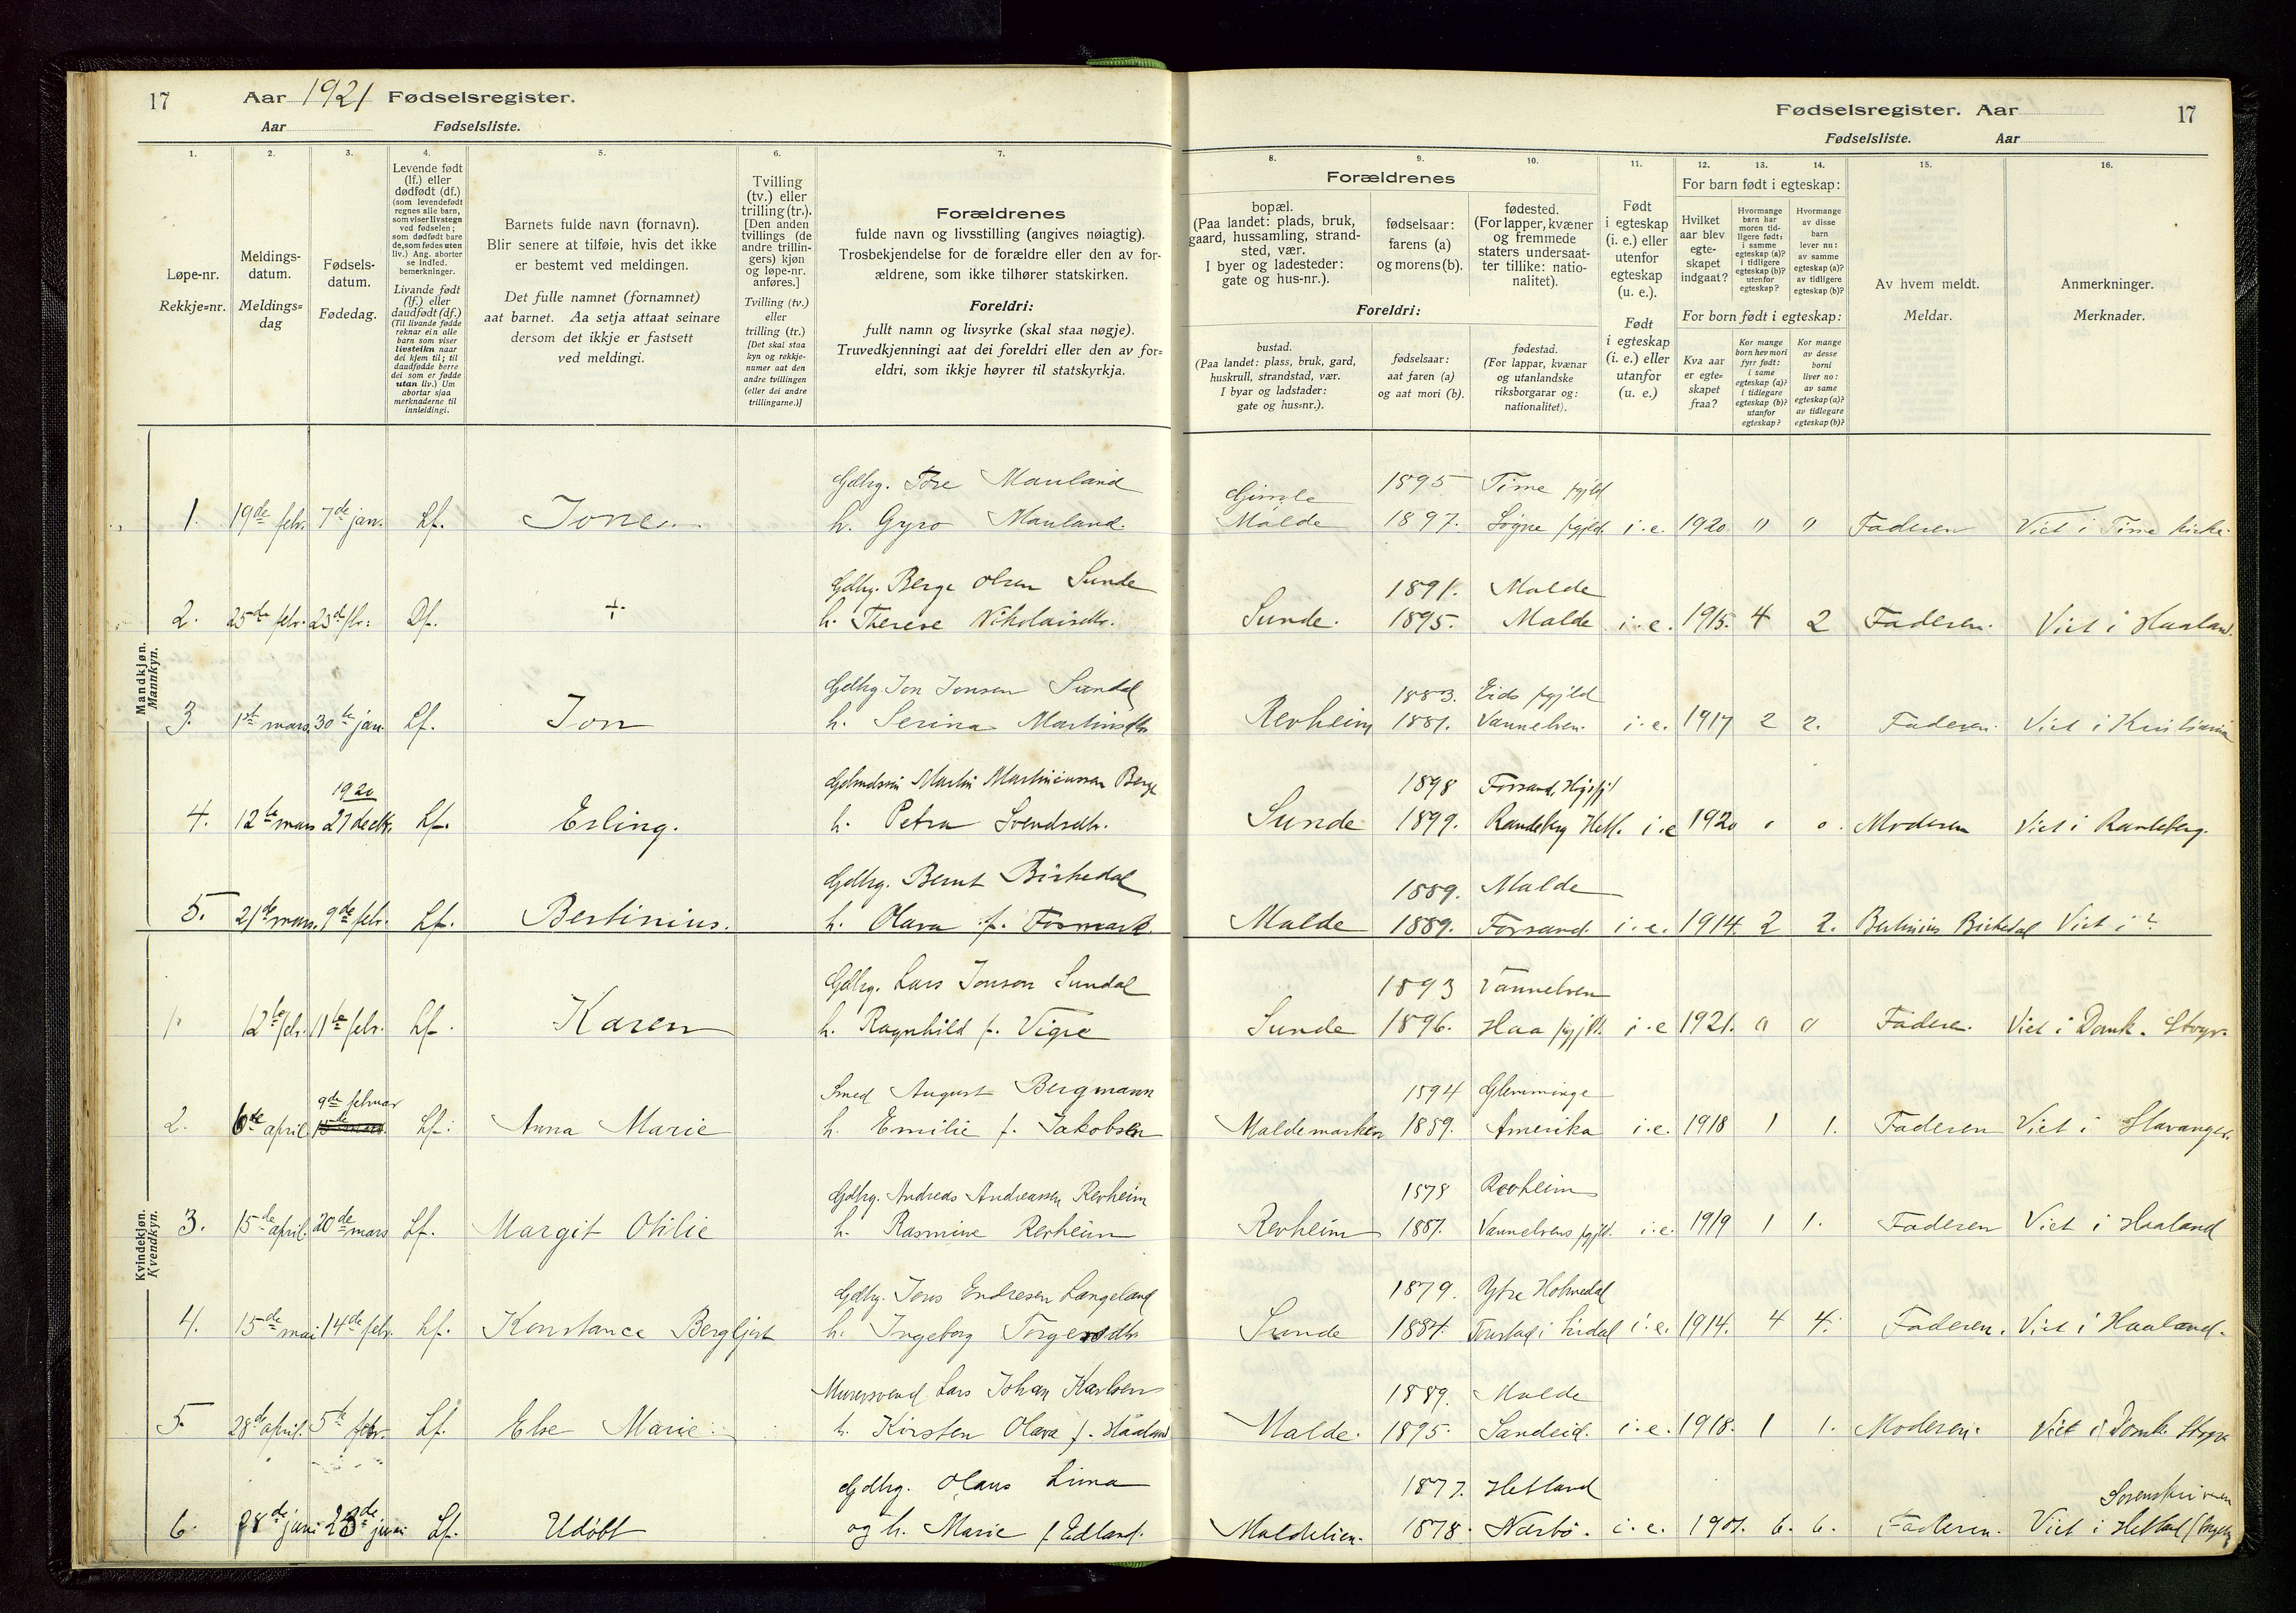 17 Aar 1921 Fødselsregister.
Aar Fødselsliste.
Fødselsregister. Aar 17
Fødselsliste. Aar
1.
Løpe-nr.
Rekkje=nr.
2.
Meldings-
datum.
Meldings=
dag
3.
Fødsels-
datum.
Fødedag.
4.
Levende født
(lf.) eller
dødfødt (df.)
(som levendefødt
regnes alle barn,
som viser livstegn
ved fødselen;
som dødfødt bare
de, som fødes uten
liv.) Ang. aborter
se indled.
bemerkninger.
Livande født
(lf.) eller
daudfødt (df.)
(Til livande fødde
reknar ein alle
barn som viser
livsteikn naar
dei kjem til; til
daudfødde berre
dei som er fødde
utan liv.) Um
abortar sjaa
merknaderne til
innleidingi.
5.
Barnets fulde navn (fornavn).
Blir senere at tilføie, hvis det ikke
er bestemt ved meldingen.
Det fulle namnet (fornamnet)
aat barnet. Aa setja attaat seinare
dersom det ikkje er fastsett
ved meldingi.
6.
Tvilling
(tv.) eller
trilling (tr.).
[Den anden
tvillings (de
andre trillin-
gers) kjøn
og løpe-nr.
anføres.]
Tvilling (tv.)
eller
trilling (tr.)
[Det skal staa
kyn og rekkje-
numer aat den
andre tvillingen
(eller dei andre
trillingarne.)]
7.
Forældrenes
fulde navn og livsstilling (angives nøiagtig).
Trosbekjendelse for de forældre eller den av for-
ældrene, som ikke tilhører statskirken.
Foreldri:
fullt namn og livsyrke (skal staa nøgje).
Truvedkjenningi aat dei foreldri eller den av for=
eldri, som ikkje høyrer til statskyrkja.
8. 9. 10.
Forældrenes
bopæl.
(Paa landet: plads, bruk,
gaard, hussamling, strand-
sted, vær.
I byer og ladesteder:
gate og hus-nr.).
fødselsaar:
farens (a)
og morens (b).
fødested.
(For lapper, kvæner
og fremmede
staters undersaat-
ter tillike: natio-
nalitet).
Foreldri:
bustad.
(Paa landet: plass, bruk, gard,
huskrull, strandstad, vær.
I byar og ladstader:
gate og hus=nr.).
fødselsaar:
aat faren (a)
og aat mori (b).
fødestad.
(For lappar, kvænar
og utanlandske
riksborgarar og:
nationalitet).
11.
Født
i egteskap
(i. e.) eller
utenfor
egteskap
(u. e.).
Født
i egteskap
(i. e.) eller
utanfor
(u. e.)
12. 13. 14.
For barn født i egteskap:
Hvilket
aar blev
egte-
skapet
indgaat?
Hvormange
barn har
moren tid-
ligere født:
i samme
egteskap (a)?
i tidligere
egteskap (b)?
utenfor
egteskap?
Hvormange
av disse
barn
lever nu:
av samme
egteskap (a)?
av tidligere
egteskap (b)?
For born født i egteskap:
Kva aar
er egte=
skapet
fraa?
Kor mange
born hev mori
fyrr født:
i same
egteskap (a)?
i tidlegare
egteskap (b)?
utanfor
egteskap?
Kor mange
av desse
borni
liver no:
av same
egteskap (a)?
av tidlegare
egteskap (b)?
15.
Av hvem meldt.
Meldar.
16.
Anmerkninger.
Merknader.
Mandkjøn.
Mannkyn.
Gdbrg. Tore Mauland 1895 Time pgjld
1. 19de febr. 7de jan. Lf. Tone. h. Gyro Mauland. Gimle Malde 1897. Sogne pgjld. i. e. 1920 " " Faderen Viet i Time kirke.
Gdbrg. Berge Olsen Sunde 1891. Malde
2. 25de febr. 23de fbr. Df. + h. Therese Nikolaisdtr. Sunde. 1895. Malde i. e. 1915. 4 2 Faderen. Viet i Haaland.
Gdbrg. Jon Jonsen Sundal 1883. Eids pgjld
3. 1ste mars. 30te jan. Lf. Jon h. Serina Martinsdtr Revheim 1887. Vannelven. i. e. 1917 2 2. Faderen. Viet i Kristiania
1920 Martin Martiniussen Berge 1898 Forsand,
4. 12te mars 27 decbr. Lf. Erling. h. Petra Svendsdtr. Sunde 1899. Randeberg Hetl. i. e 1920 " o. Moderen Viet i Randeberg.
Gdbrg. Bernt Birkedal 1889. Malde
5. 21de mars. 9de febr. Lf. Bertinius. h. Olava f. Fosmark. Malde 1889. Forsand. i. e. 1914. 2 2. Bertinius Birkedal Viet i ?
Kvindekjøn.
Kvendkyn.
Gdbrg. Lars Jonson Sundal 1893 Vannelven
1. 12te febr. 11te febr. Lf. Karen h. Ragnhild f. Vigre Sunde 1896. Haa pgjld. i. e 1921. 0 0 Faderen. Viet i Domk. Stvgr.
9de februar Smed August Bergmann 1894 Glemminge
2. 6te april. Lf. Anna Marie h. Emilie f. Jakobsen Maldemarken 1889. Amerika i. e. 1918 1 1. Faderen Viet i Stavanger.
Gdbrg. Andreas Andreassen Revheim 1878 Revheim
3. 15de april. 20de mars Lf. Margit Otilie h. Rasmine Revheim Revheim 1887. Vannelvens pgjld. i. e. 1919 1 1. Faderen Viet i Haaland
Gdbrg. Jons Endresen Langeland 1879. Ytre Holmedal
4. 15de mai 14de febr. Lf. Konstance Bergljot h. Ingeborg Torgersdtr Sunde 1884. i Sirdal i. e. 1914. 4 4. Faderen. Viet i Haaland.
Murersvend Lars Johan Karlsen 1889. Malde
5. 28de april. 5te febr. Lf. Else Marie. h. Kirsten Olava f. Haaland Malde. 1895. Sandeid. i. e. 1918. 1 1. Moderen. Viet i Domk. Stvgr.
Gdbrg. Olaus Lima 1877. Hetland Sorenskriveren
6. 28de juni 23de juni Lf. Udöbt og h. Marie f. Edland. Maldelien. 1878. Nærbö. i. e. 1907. 6. 6. Faderen. Viet i Hetland